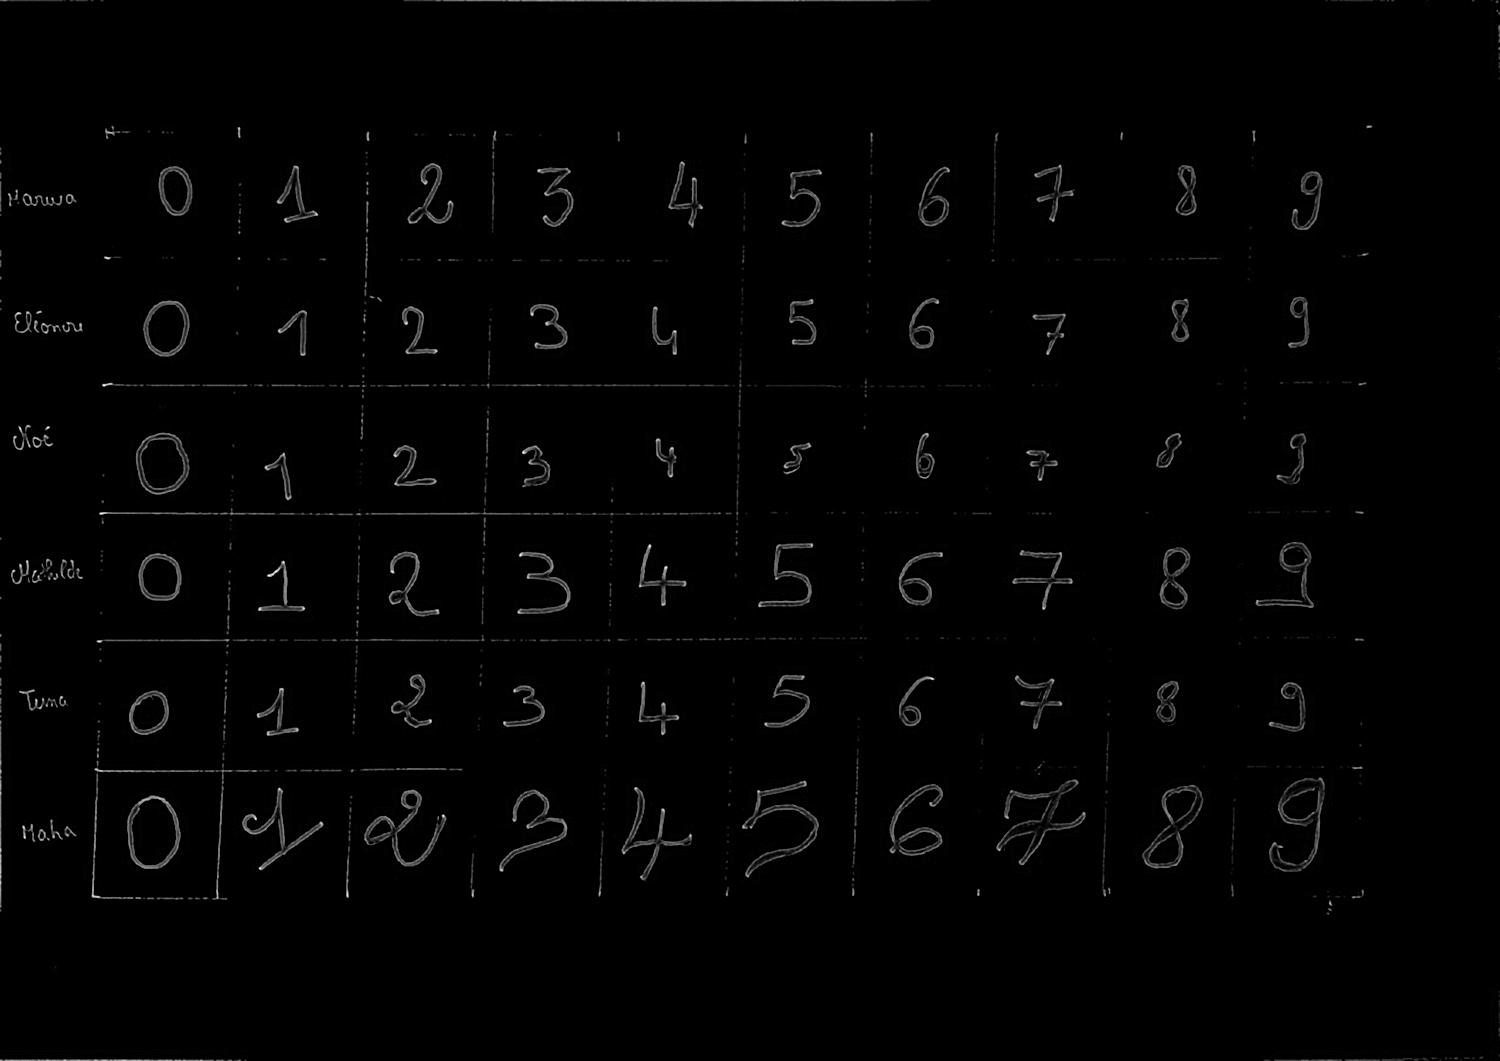 Marwa 0 1 2 3 4 5 6 7 8 9
Eléonore 0 1 2 3 4 5 6 7 8 9
Noé 0 1 2 3 4 5 6 7 8 9
Mathilde 0 1 2 3 4 5 6 7 8 9
0 1 2 3 4 5 6 7 8 9
Maha 0 1 2 3 4 5 6 7 8 9